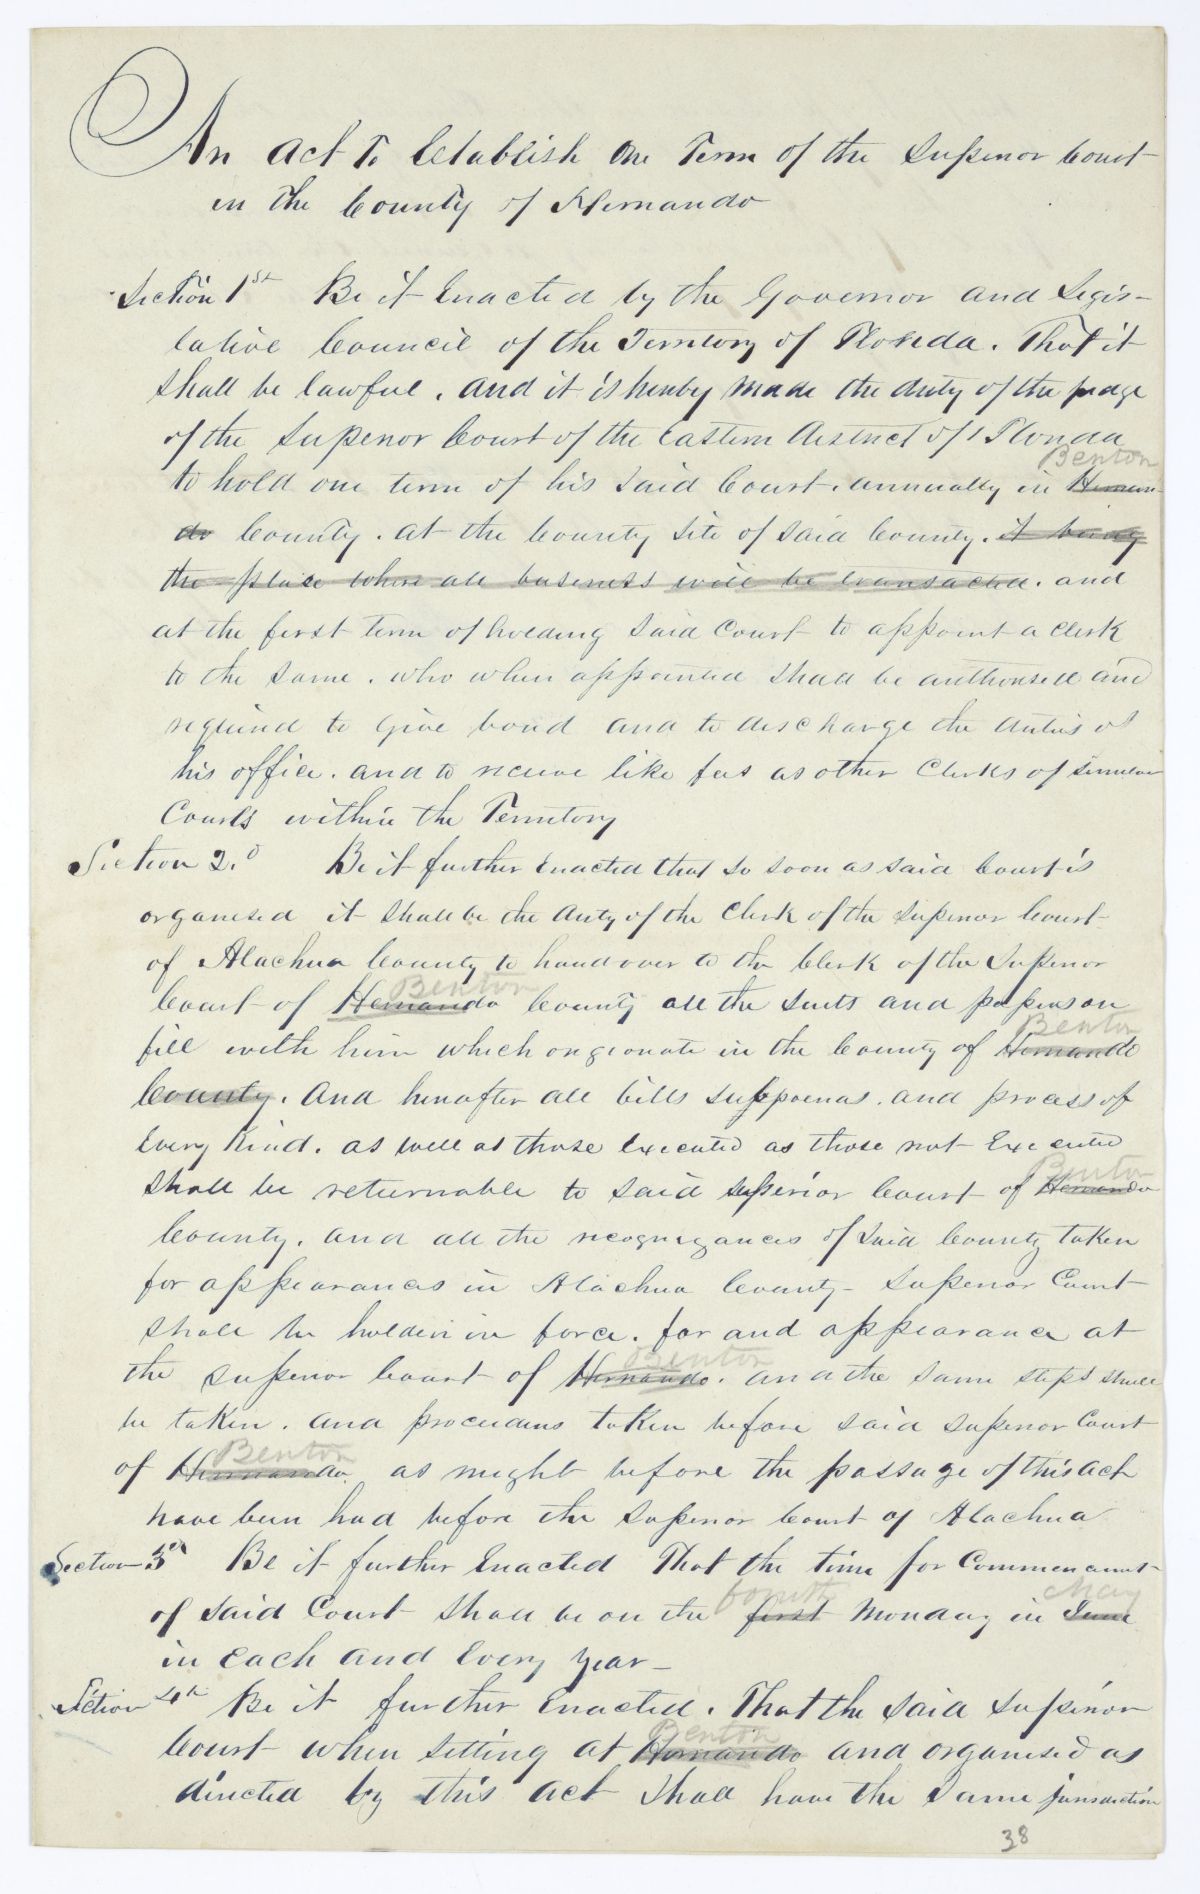 An Act To Establish One Term of the Superior Court
in the County of Hernando
Section 1st Be it Enacted by the Governor and Legis-
lative Council of the Territory of Florida. That it
shall be lawful. and it is hereby made the duty of the judge
of the Superior Court of the Eastern District of Florida
Benton
to hold one term of his said Court. annually in Hernan-
do County. at the County Site of said County. it being
the place where all business will be transacted. and
at the first term of holding said Court to appoint a clerk
to the same. who when appointed shall be authorised and
required to give bond and to discharge the duties of
his office. and to receive like fees as other Clerks of similar
Courts within the Territory
Section 2.d Be it further Enacted that so soon as said Court is
organised it shall be the duty of the Clerk of the Superior Court
of Alachua County to hand over to the Clerk of the Superior
Benton
Court of Hernando County all the suits and papers on
Benton
file with him which origionate in the County of Hernando
County. And hereafter all bills subpoenas. and process of
Every Kind. as well as those Executed as those not Executed
Benton
shall be returnable to said superior Court of Hernando
County. and all the recognizances of said County taken
for appearances in Alachua County - Superior Court
shall be holden in force. for and appearance at
Benton
the superior Court of Hernando. and the same steps shall
be taken. and proceedens taken before said superior Court
Benton
of Hernando. as might before the passage of this act
have been had before the Superior Court of Alachua
Section 3d Be it further Enacted That the time for Commencement
fourth May
of said Court shall be on the first Monday in June
in each and Every year -
Section 4th Be it further Enacted. That the said superior
Benton
Court when sitting at Hernando and organised as
directed by this act shall have the same jurisdiction
38